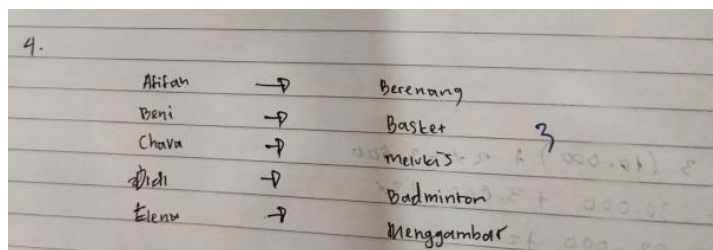 4.
Afifan → Berenang
Beni → Basket
Chava → melukis
Didi → Badminton
Elena → Menggambar
3